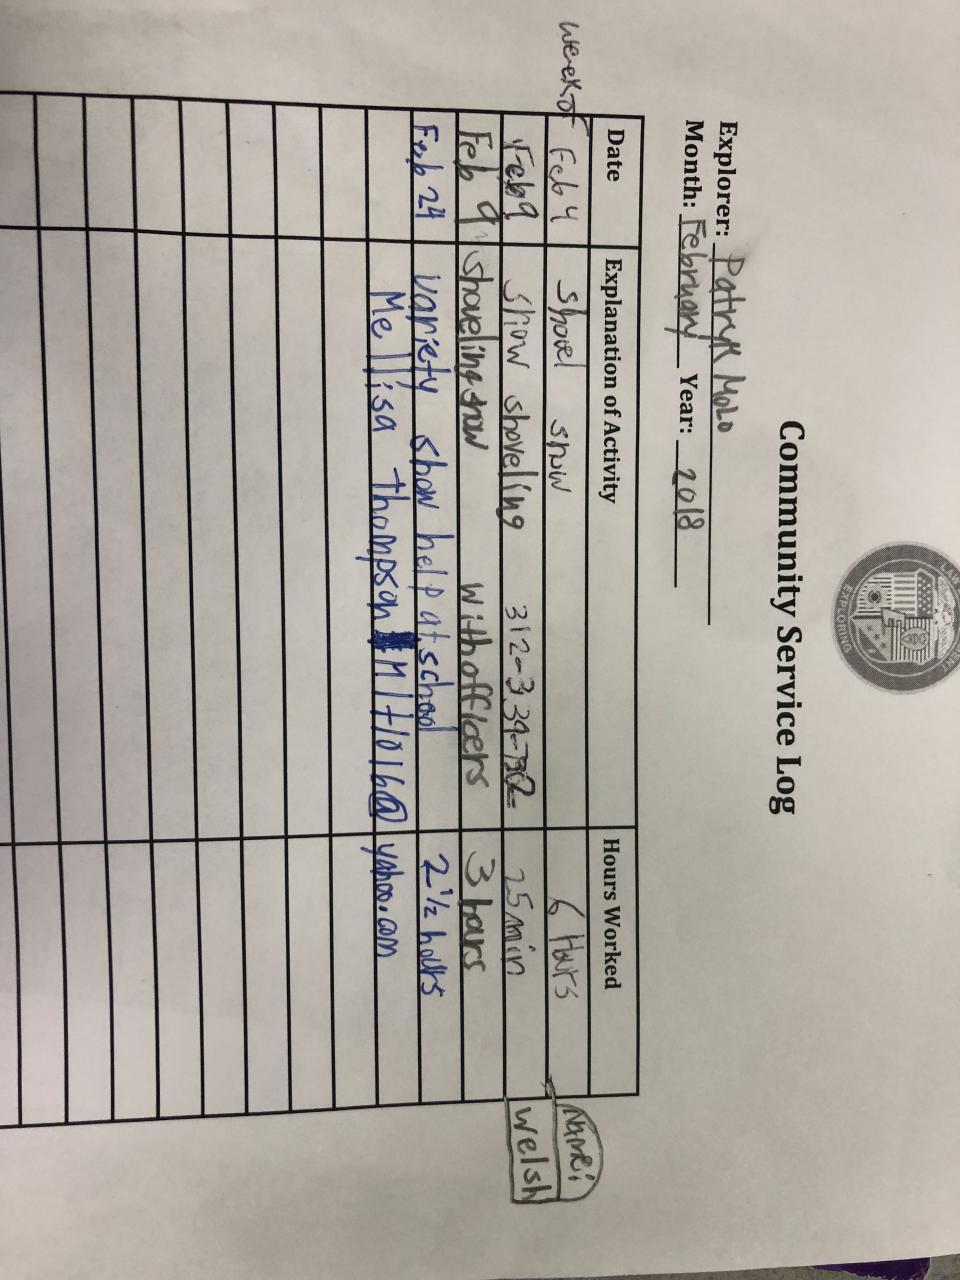 EXPLORING
Community Service Log
Explorer: Patryk Molo
Month: February Year: 2018
Date Explanation of Activity Hours Worked
week of Feb 4 Shovel snow 6 Hours Name:
Feb 9 Snow shoveling 25 min Welsh
Feb 9 shoveling snow with officers 3 hours
Feb 24 variety show help at school 2 1/2 hours
Mellisa Thompson yahoo.com